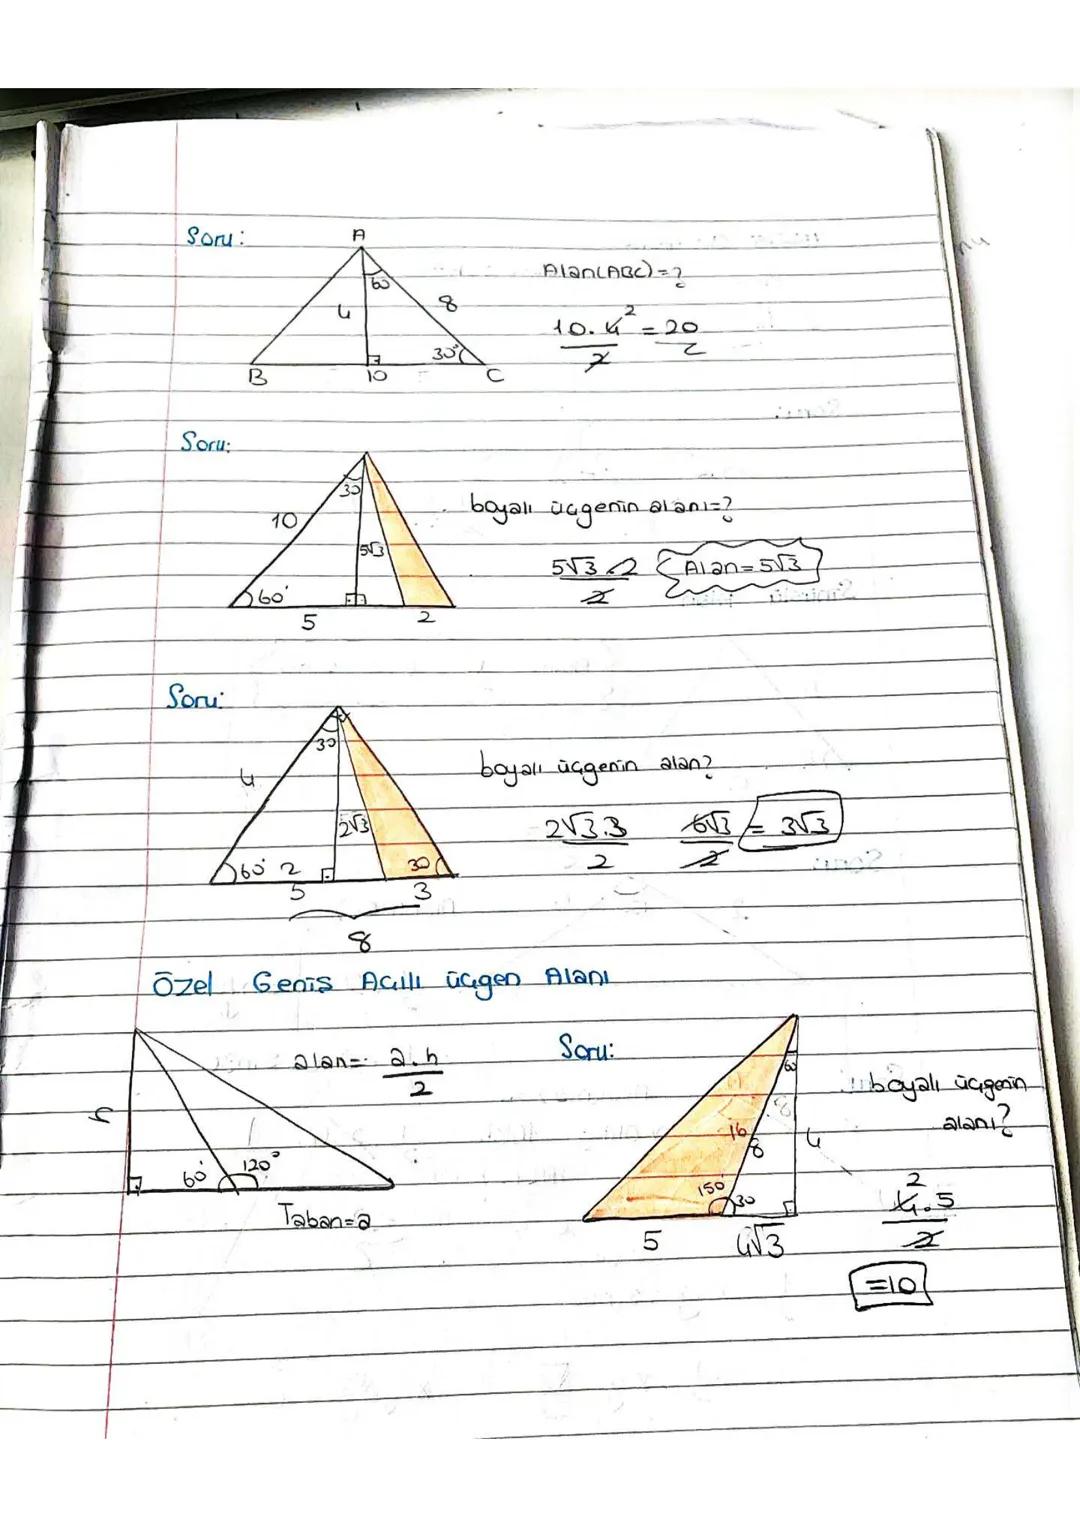 Soru:
A
60
4
8
30°
B
10
C
Alan(ABC)=?
10.4 2 = 20
2
Soru:
30
10
5√3
60°
5
2
boyalı üçgenin alanı=?
5√3.2
2
Alan=5√3
Soru:
30
4
2√3
60° 2
30
5
3
8
boyalı üçgenin alan?
2√3.3
2
6√3
2
= 3√3
Özel Geniş Açılı üçgen Alanı
h
60°
120°
Taban=a
alan= a.h
2
Soru:
60
16
8
4
150
30
5
4√3
boyalı üçgenin
alanı?
2
4.5
2
=10